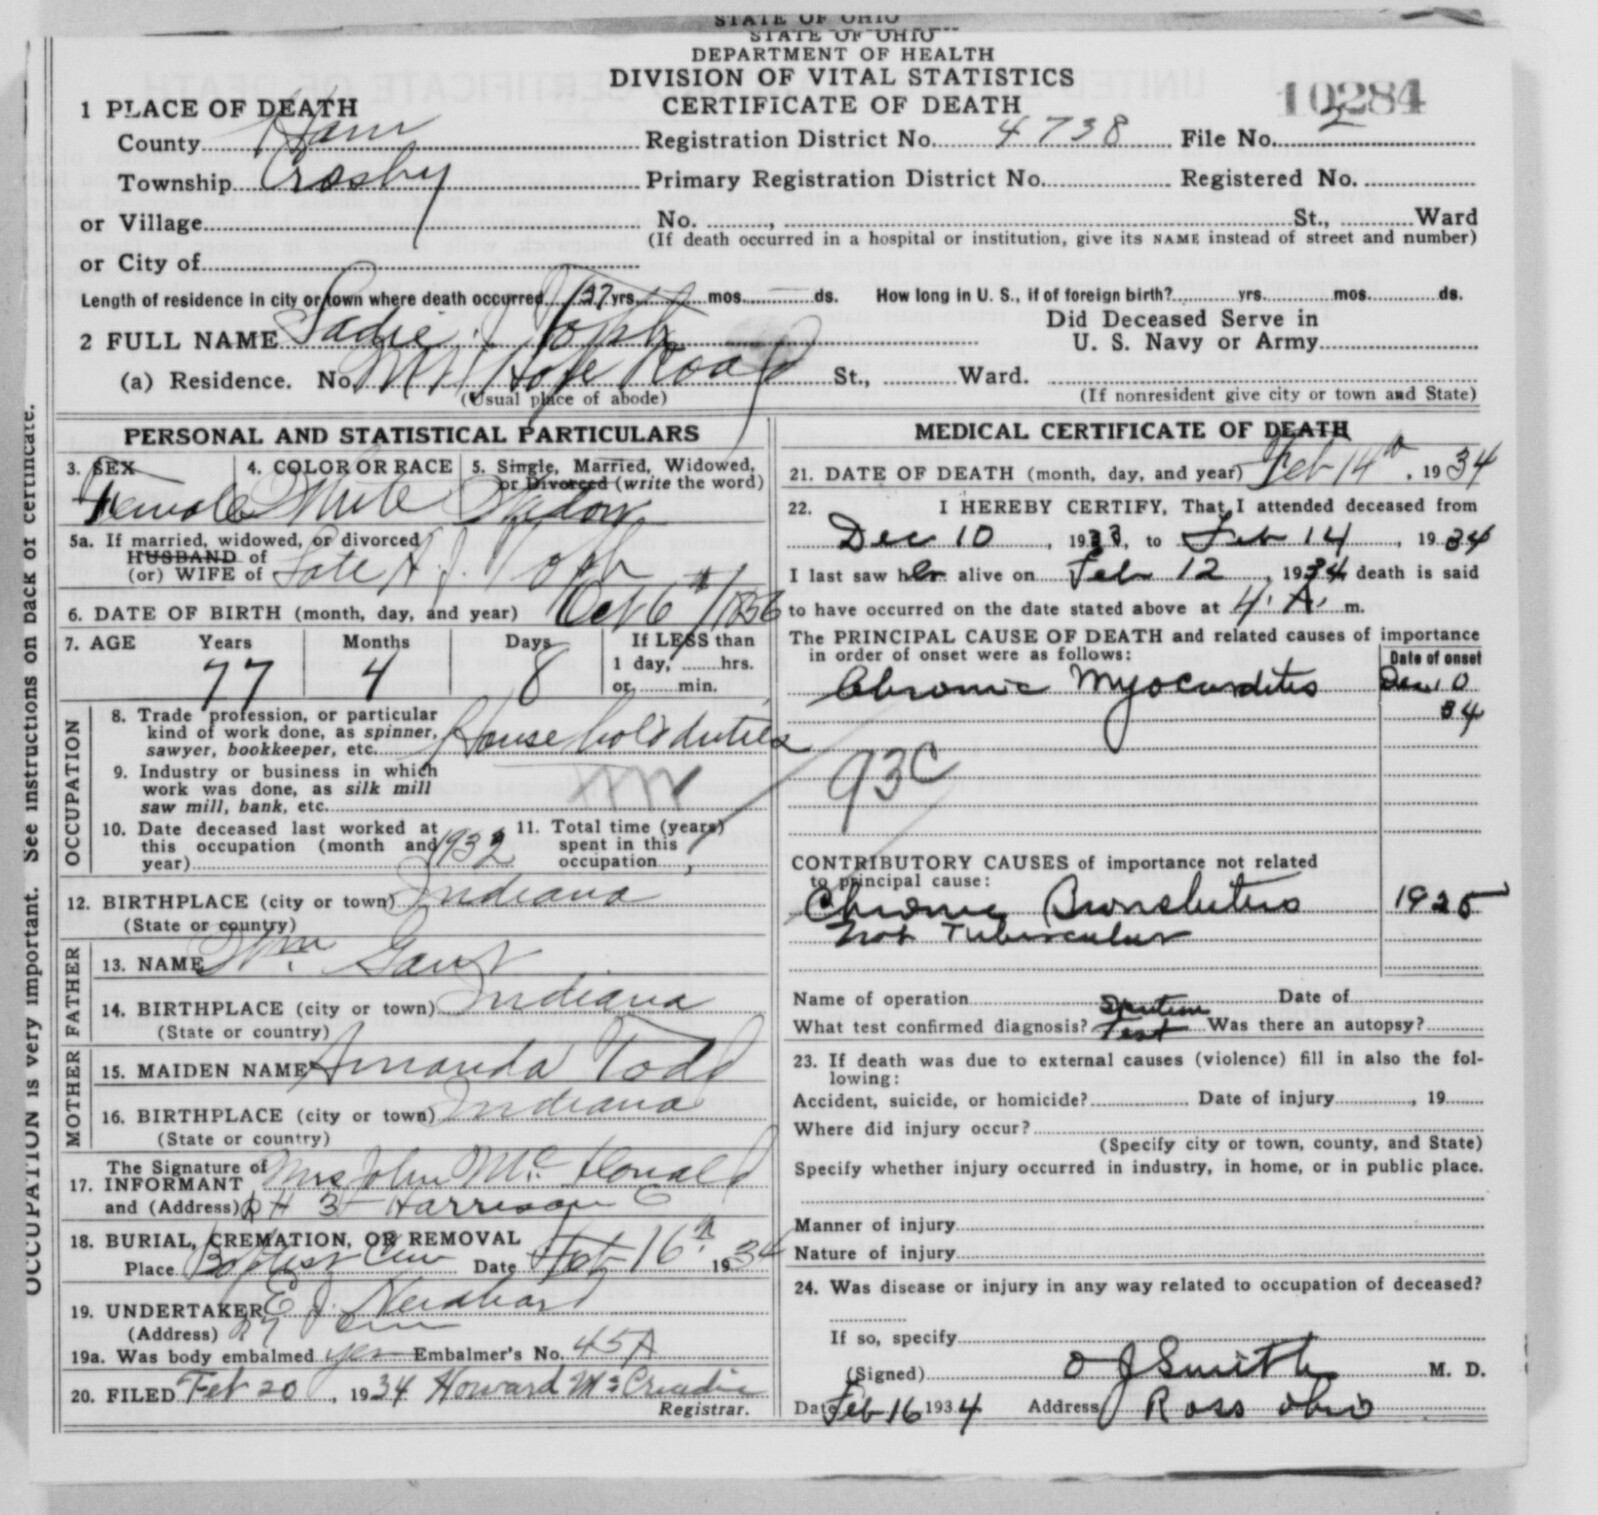 STATE OF OHIO
STATE OF OHIO
DEPARTMENT OF HEALTH
DIVISION OF VITAL STATISTICS
CERTIFICATE OF DEATH
10284
1 PLACE OF DEATH
County Ham
Registration District No. 4738 File No. 2
Township Crosby
Primary Registration District No. Registered No.
or Village
No. , St., Ward
(If death occurred in a hospital or institution, give its NAME instead of street and number)
or City of
Length of residence in city or town where death occurred 37 yrs. mos. ds. How long in U. S., if of foreign birth? yrs. mos. ds.
2 FULL NAME Sadie J
Did Deceased Serve in
U. S. Navy or Army
(a) Residence. No. Mt Hope Road St., Ward.
(Usual place of abode)
(If nonresident give city or town and State)
PERSONAL AND STATISTICAL PARTICULARS
3. SEX 4. COLOR OR RACE 5. Single, Married, Widowed, or Divorced (write the word)
Female White Widow
5a. If married, widowed, or divorced
HUSBAND of
(or) WIFE of Late A. J.
6. DATE OF BIRTH (month, day, and year) Oct 6th 1856
7. AGE Years Months Days If LESS than
1 day, hrs.
or min.
77 4 8
OCCUPATION
8. Trade profession, or particular
kind of work done, as spinner,
sawyer, bookkeeper, etc. Household duties
9. Industry or business in which
work was done, as silk mill
saw mill, bank, etc.
10. Date deceased last worked at
this occupation (month and
year) 1932
11. Total time (years)
spent in this
occupation
12. BIRTHPLACE (city or town) Indiana
(State or country)
FATHER
13. NAME Wm
14. BIRTHPLACE (city or town) Indiana
(State or country)
MOTHER
15. MAIDEN NAME Amanda Todd
16. BIRTHPLACE (city or town) Indiana
(State or country)
17. The Signature of
INFORMANT Mrs John McDonald
and (Address) R # 3 Harrison O
18. BURIAL, CREMATION, OR REMOVAL
Place Baptist Cem Date Feb 16th 1934
19. UNDERTAKER E J
(Address)
19a. Was body embalmed yes Embalmer's No. 45A
20. FILED Feb 20, 1934 Howard McCreadie
Registrar.
MEDICAL CERTIFICATE OF DEATH
21. DATE OF DEATH (month, day, and year) Feb 14th, 1934
22. I HEREBY CERTIFY, That I attended deceased from
Dec 10, 1933, to Feb 14, 1934
I last saw her alive on Feb 12, 1934 death is said
to have occurred on the date stated above at 4. A. m.
The PRINCIPAL CAUSE OF DEATH and related causes of importance
in order of onset were as follows:
Date of onset
Chronic Myocarditis Dec 10
34
93C
CONTRIBUTORY CAUSES of importance not related
to principal cause:
Chronic Bronchitis 1925
not Tubercular
Name of operation Date of
What test confirmed diagnosis? Sputum Test Was there an autopsy?
23. If death was due to external causes (violence) fill in also the fol-
lowing:
Accident, suicide, or homicide? Date of injury , 19
Where did injury occur?
(Specify city or town, county, and State)
Specify whether injury occurred in industry, in home, or in public place.
Manner of injury
Nature of injury
24. Was disease or injury in any way related to occupation of deceased?
If so, specify
(Signed) O J Smith M. D.
Date Feb 16 1934 Address Ross Ohio
OCCUPATION is very important. See instructions on back of certificate.